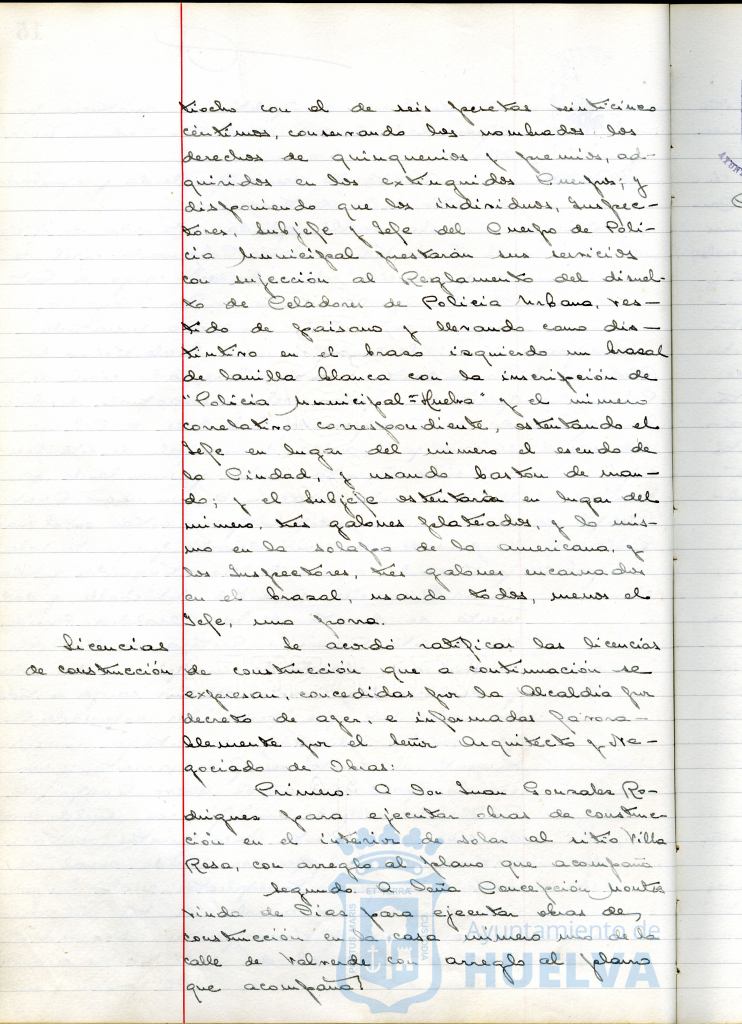 tiocho con el de seis pesetas veinticinco
céntimos, conservando los nombrados los
derechos de quinquenios y premios, ad-
quiridos en los extinguidos Cuerpos; y
disponiendo que los individuos, Inspec-
tores, Subjefe y Jefe del Cuerpo de Poli-
cia Municipal prestarán sus servicios
con sujección al Reglamento del disuel-
to de Celadores de Policia Urbana, ves-
tido de paisano y llevando como dis-
tintivo en el brazo izquierdo un brazal
de lanilla blanca con la inscripción de
"Policia Municipal=Huelva" y el número
correlativo correspondiente, ostentando el
Jefe en lugar del número el escudo de
la Ciudad, y usando bastón de man-
do; y el Subjefe ostentaria en lugar del
número, tres galones plateados, y lo mis-
mo en la solapa de la americana, y
los Inspectores, tres galones encarnados
en el brazal, usando todos, menos el
Jefe, una porra.
Licencias
de construcción
Se acordó ratificar las licencias
de construcción que a continuación se
expresan, concedidas por la Alcaldia por
decreto de ayer, e informadas favora-
blemente por el Señor Arquitecto y Ne-
gociado de Obras:
Primero. A Don Juan Gonzalez Ro-
driguez para ejecutar obras de construc-
ción en el interior de solar al sitio Villa
Rosa, con arreglo al plano que acompaña
Segundo. A Doña Concepción Montes
viuda de Dias para ejecutar obras de
construcción en la casa número uno de la
calle de Valverde con arreglo al plano
que acompaña.
Ayuntamiento de
HUELVA
PORTUS MARIS
ET TERRÆ
CUSTODIA